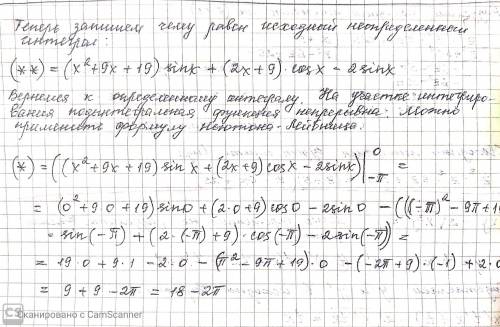 Теперь запишем чему равен исходный неопределенный
интеграл:
(**) = (x²+9x+19) sinx + (2x+9) · cosx - 2sinx
Вернемся к определенному интегралу. На участке интегриро-
вания подинтегральная функция непрерывна. Можно
применить формулу Ньютона-Лейбница.
(*) = ((x²+9x+19) sin x + (2x+9) cosx - 2sinx)|₋π⁰ =
= (0²+9·0+19) sin0 + (2·0+9) cos0 - 2sin0 - (((-π)²-9π+19
· sin(-π) + (2·(-π)+9) · cos(-π) - 2sin(-π)) =
= 19·0 + 9·1 - 2·0 - (π²-9π+19)·0 - (-2π+9)·(-1) + 2·0
= 9+9-2π = 18-2π
CS Сканировано с CamScanner